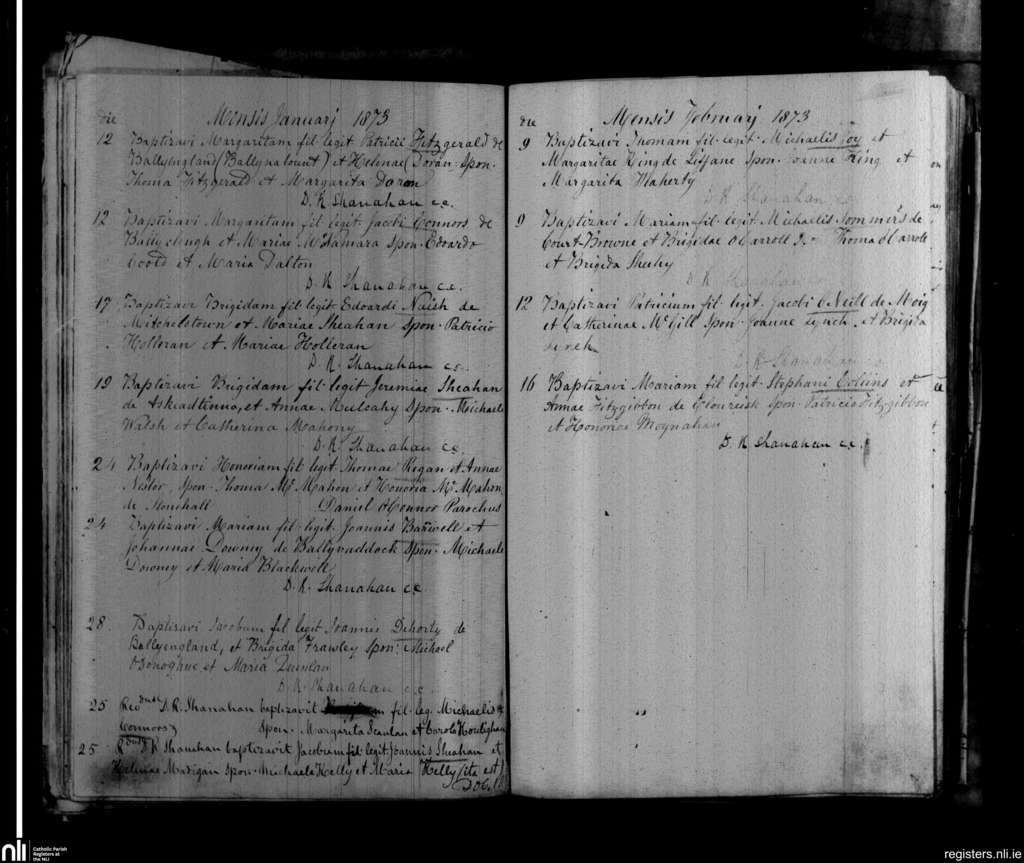 die Mensis Januarj 1873
12 Baptizavi Margaritam fil legit Patricii Fitzgerald de
Ballyengland (Ballynalount) et Helenae (Doran) Spon.
Thoma Fitzgerald et Margarita Doron
D. R Shanahan c.c.
12 Baptizavi Margaritum fil legit Jacobi Connors de
Ballyclough et Mariae McNamara Spon. Edoardo
et Maria Dalton
D. R Shanahan c.c.
17 Baptizavi Brigidam fil-legit Edoardi Naish de
Mitchelstown et Mariae Sheahan Spon. Patricio
Holloran et Mariae Holleran
D. R. Shanahan c.c.
19 Baptizavi Brigidam fil-legit Jeremiae Sheahan
de et Annae Mulcahy Spon. Michaele
Walsh et Catherina Mahony
D. R. Shanahan c.c.
24 Baptizavi Honoriam fil legit Thomae Regan et Annae
Nestor, Spon. Thoma Mc Mahon et Honoria Mc Mahon
de Stonehall Daniel O'Connor Parochus
24 Baptizavi Mariam fil. legit. Joannis et
Johannae Downey de Ballyvaddock Spon. Michaele
Downey et Maria Blackwell
D. R. Shanahan c.c.
28 Baptisavi Jacobum fil legit Joannis Dehorty de
Ballyengland, et Brigida Frawley Spon. Michael
O'Donoghue et Maria Quinlan
D. R Shanahan c.c.
25 Revdus D. R. Shanahan baptizavit fil. leg. Michaelis
Connors Spon. Margarita Scanlan et
25 D R Shanahan baptizavit Jacobum fil legit. Joannis Sheahan et
Helenae Madigan Spon. Michaele Kelly et Maria Kelly (ita est)
D O'C.
die Mensis Februarj 1873
9 Baptizavi Thomam fil-legit. Michaelis Foy et
Margaritae King de Lissane Spon. Joanne King et
Margarita Flaherty
D. R Shanahan c.c.
9 Baptizavi Mariam fil-legit Michaelis Sommers de
Court-Browne et Brigidae O'Carroll Thoma O'Carroll
et Brigida Sheehy
D. R Shanahan
12 Baptizavi Patricium fil. legit. Jacobi O'Neill de Moig
et Catherinae McGill Spon. Joanne Lynch, et Brigida
Lynch
D. R Shanahan c.c.
16 Baptizavi Mariam fil legit. Stephani Collins et
Annae Fitzgibbon de Spon. Patricio Fitzgibbon
et Honoriae Moynahan
D. R Shanahan c.c.
nli
Catholic Parish
Registers at
the NLI
registers.nli.ie